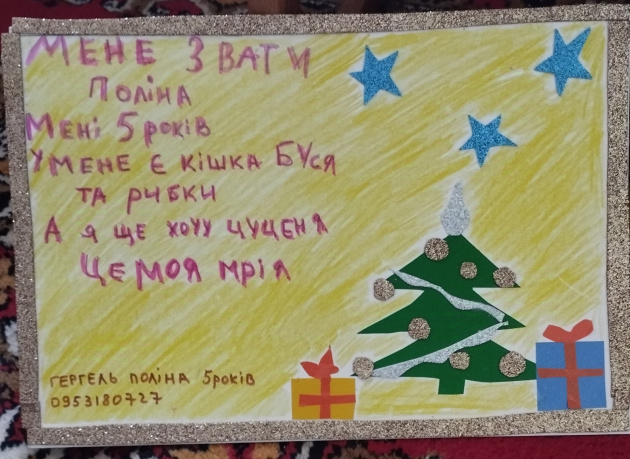 МЕНЕ ЗВАТИ
ПОЛІНА
МЕНІ 5 РОКІВ
У МЕНЕ Є КІШКА БУСЯ
ТА РИБКИ
А Я ЩЕ ХОЧУ ЦУЦЕНЯ
ЦЕ МОЯ МРІЯ
ГЕРГЕЛЬ ПОЛІНА 5 РОКІВ
0953180727